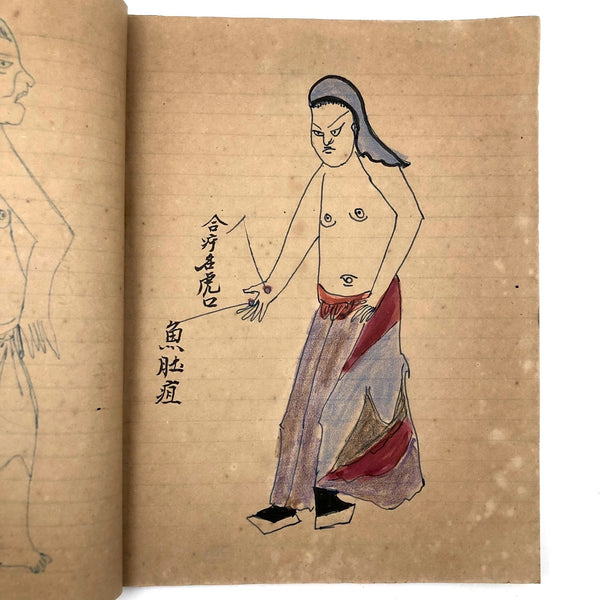 合疔名虎口
魚肚疽